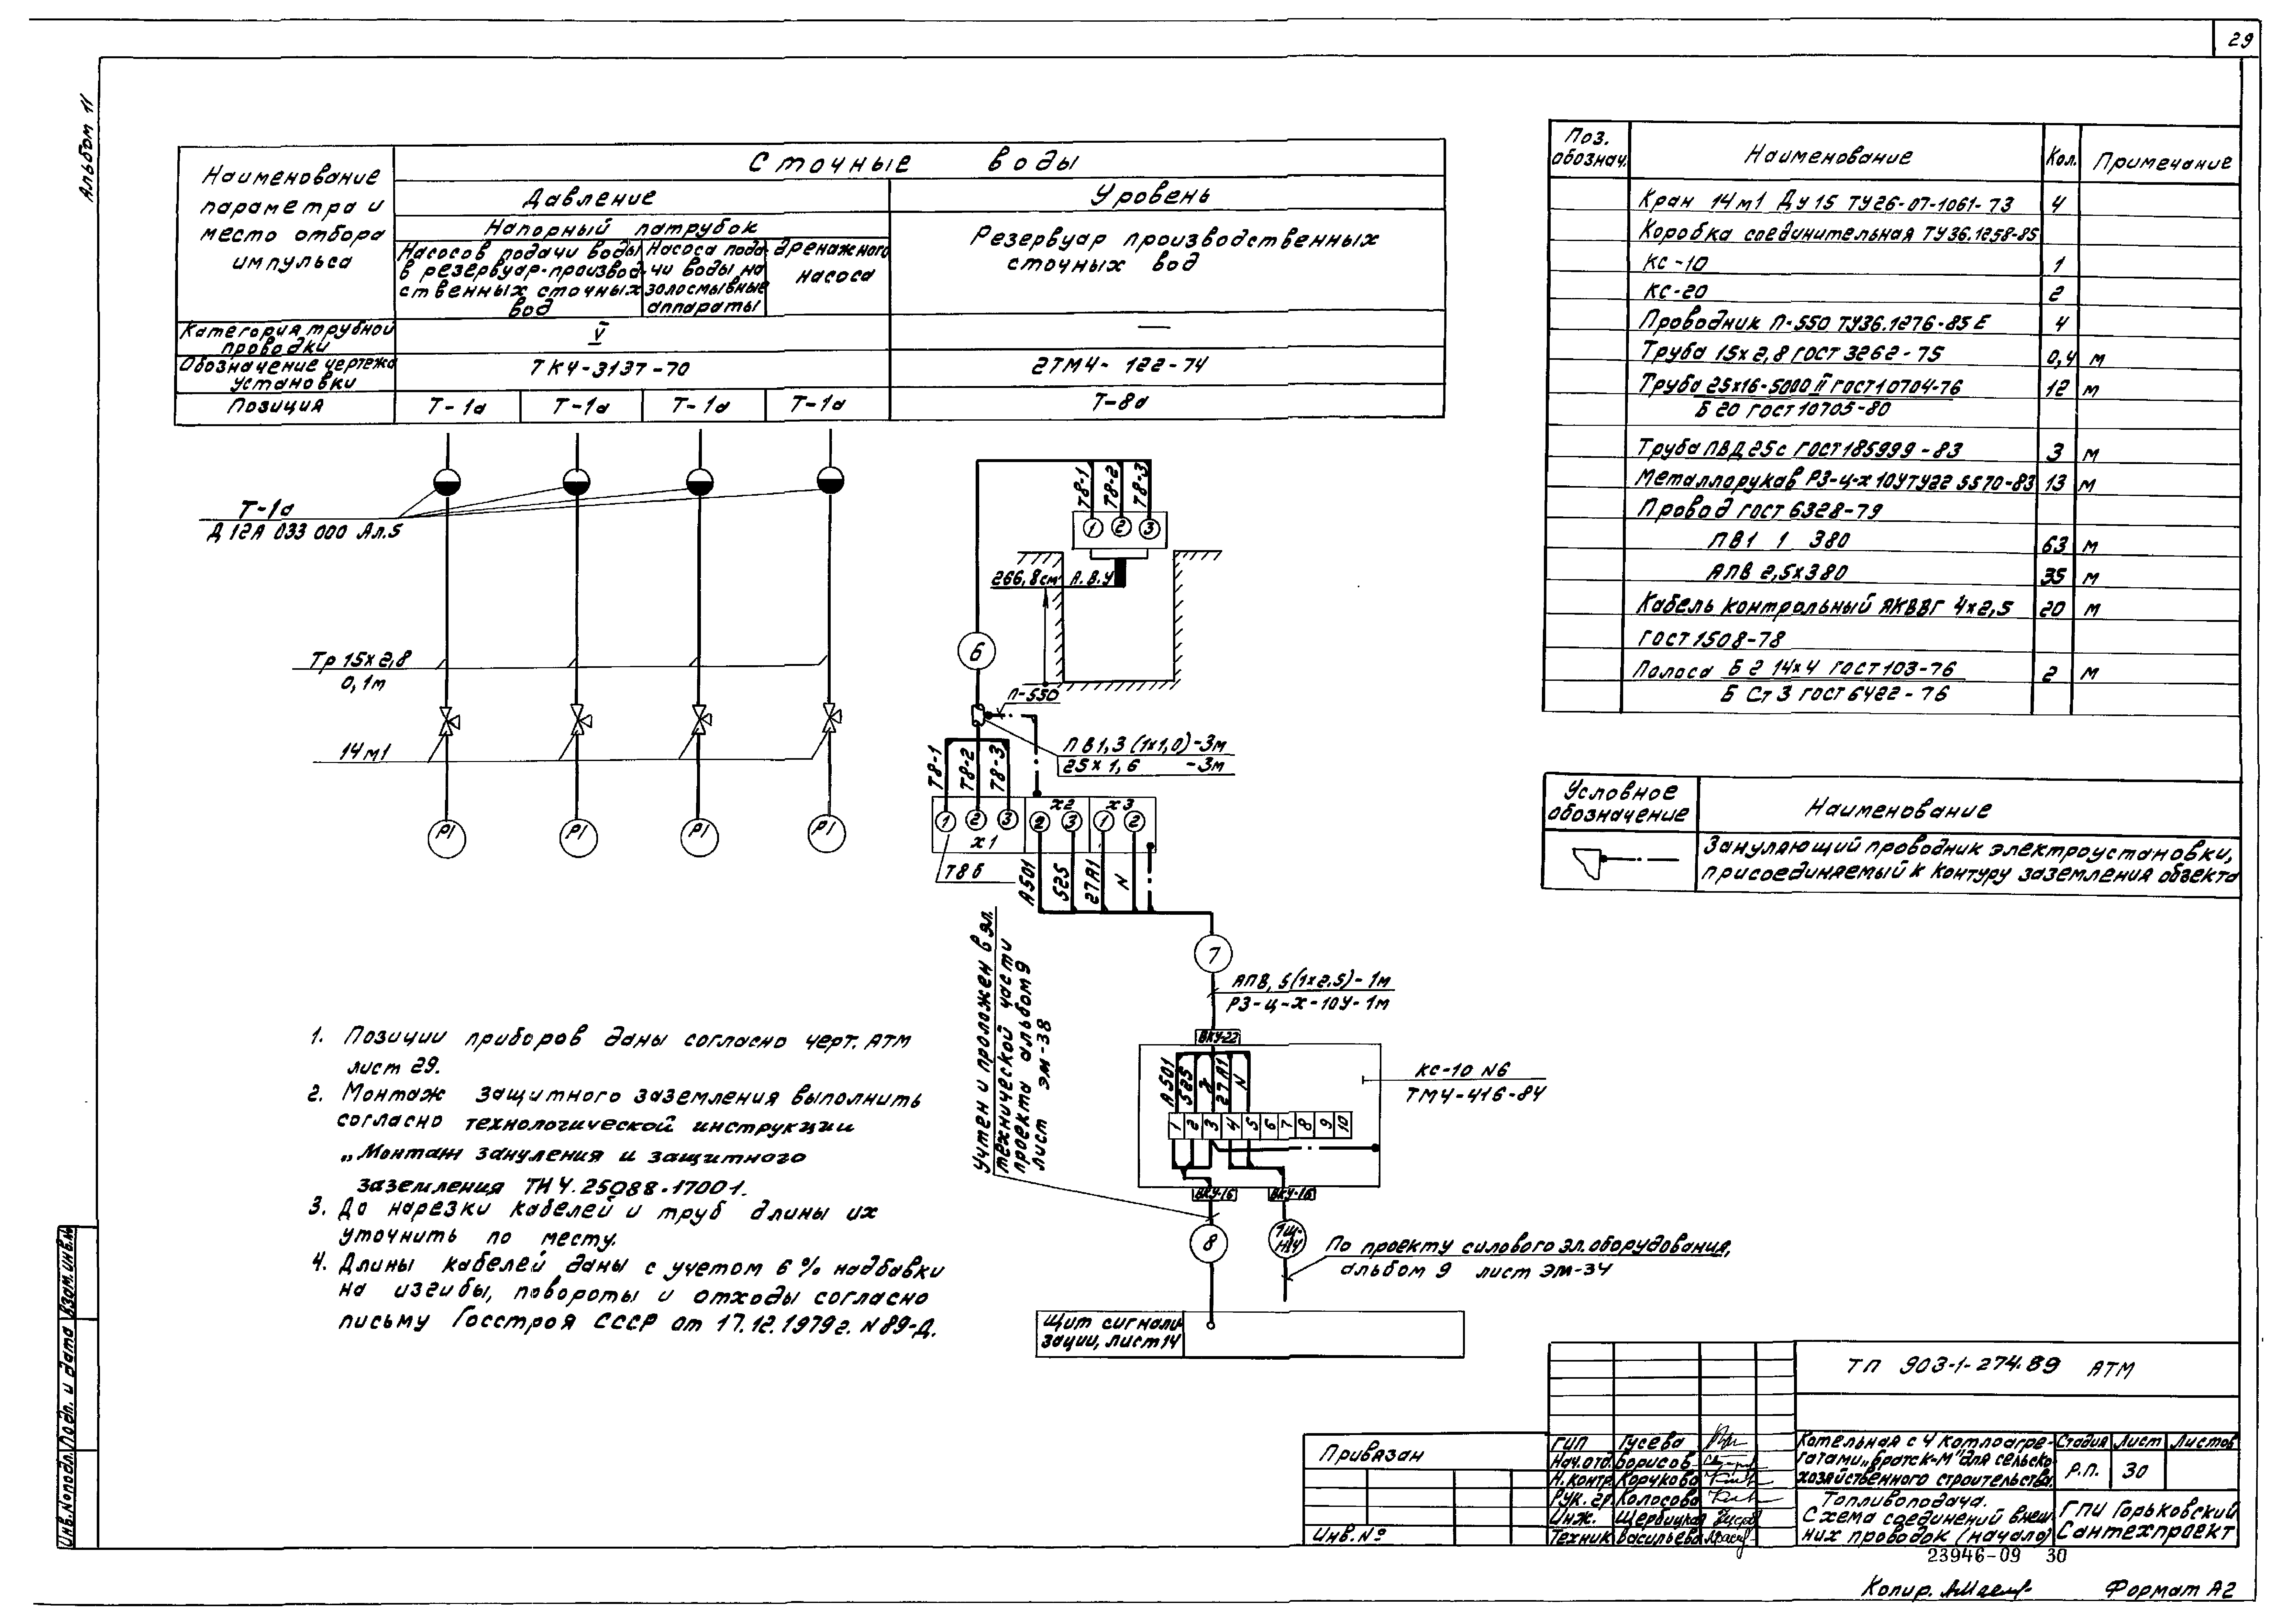 29
Альбом 11
Наименование
параметра и
место отбора
импульса
Сточные воды
Давление
Уровень
Напорный патрубок
Насосов подачи воды
в резервуар-производ
ственных сточных
вод
Насоса пода
чи воды на
золосмывные
аппараты
дренажного
насоса
Резервуар производственных
сточных вод
Категория трубной
проводки
V
—
Обозначение чертежа
установки
ТК4-3137-70
2ТМ4-122-74
Позиция
Т-1а
Т-1а
Т-1а
Т-1а
Т-8а
Т-1а
Д 12А 033 000 Ал.5
Тр 15х2,8
0,1м
14м1
PI
PI
PI
PI
Т8-1
Т8-2
Т8-3
1 2 3
266,8см А.В.У
6
П-550
ПВ1,3(1х1,0)-3м
25х1,6 -3м
Т8-1
Т8-2
Т8-3
1 2 3
х1
х2
2 3
х3
1 2
Т8б
А501
525
27А1
N
7
АПВ, 5(1х2,5)-1м
РЗ-Ц-Х-10У-1м
Учтен и проложен в эл.
технической части
проекта альбом 9
лист ЭМ-38
ВКУ-22
А501
525
27А1
N
1 2 3 4 5 6 7 8 9 10
КС-10 N6
ТМ4-416-84
ВКУ-16
ВКУ-16
8
1Щ-
Н14
По проекту силового эл.оборудования,
альбом 9 лист ЭМ-34
Щит сигнали-
зации, лист14
1. Позиции приборов даны согласно черт. АТМ
лист 29.
2. Монтаж защитного заземления выполнить
согласно технологической инструкции
„Монтаж зануления и защитного
заземления ТН4.25088-17001.
3. До нарезки кабелей и труб длины их
уточнить по месту.
4. Длины кабелей даны с учетом 6% надбавки
на изгибы, повороты и отходы согласно
письму Госстроя СССР от 17.12.1979г. N89-Д.
Поз.
обознач.
Наименование
Кол.
Примечание
Кран 14м1 Ду15 ТУ26-07-1061-73 4
Коробка соединительная ТУ36.1258-85
КС-10 1
КС-20 2
Проводник П-550 ТУ36.1276-85Е 4
Труба 15х2,8 ГОСТ 3262-75 0,4 м
Труба 25х16-5000 II ГОСТ10704-76 12 м
Б 20 ГОСТ 10705-80
Труба ПВД25с ГОСТ185999-83 3 м
Металлорукав РЗ-Ц-Х 10УТУ22 5570-83 13 м
Провод ГОСТ 6328-79
ПВ1 1 380 63 м
АПВ 2,5х380 35 м
Кабель контрольный АКВВГ 4х2,5 20 м
ГОСТ 1508-78
Полоса Б 2 14х4 ГОСТ103-76 2 м
Б Ст 3 ГОСТ 6422-76
Условное
обозначение
Наименование
Зануляющий проводник электроустановки,
присоединяемый к контуру заземления объекта
ТП 903-1-274.89 АТМ
Привязан
Инв.№
ГИП Гусева
Нач.отд. Борисов
Н.контр. Корчкова
Рук.гр. Колосова
Инж. Щербицкая
Техник Васильева
Котельная с 4 котлоагре-
гатами„Братск-М"для сельско-
хозяйственного строительства.
Стадия Лист Листов
Р.П. 30
Топливоподача.
Схема соединений внеш
них проводок (начало)
ГПИ Горьковский
Сантехпроект
23946-09 30
Копир.
Формат А2
Инв.№подл. Подп. и дата Взам.инв.№